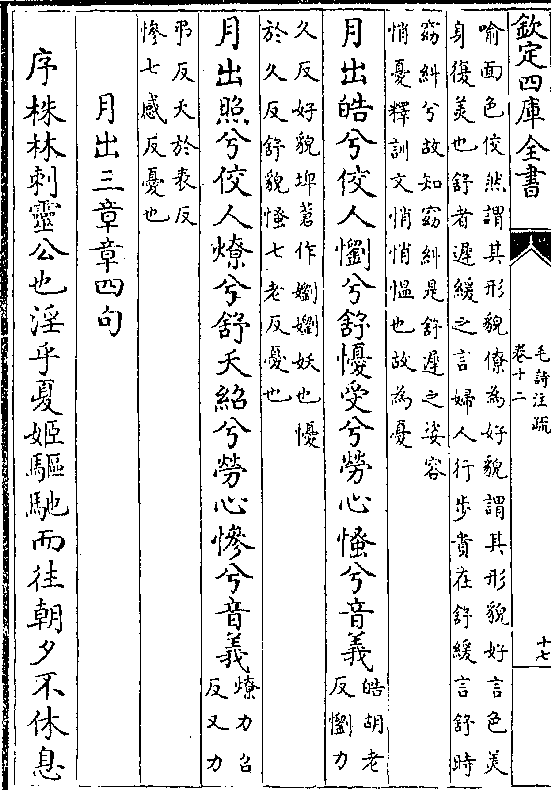 欽定四庫全書
毛詩注疏
卷十二
十七
喻面色佼然謂其形貌僚為好貌謂其形貌好言色美
身復美也舒者遲緩之言婦人行步貴在舒緩言舒時
窈糾兮故知窈糾是舒遲之姿容
悄憂釋訓文悄悄慍也故為憂
月出皓兮佼人懰兮舒懮受兮勞心慅兮音義
皓胡老
反懰力
久反好貌埤蒼作嬼嬼妖也懮
於久反舒貌慅七老反憂也
月出照兮佼人燎兮舒夭紹兮勞心慘兮音義
燎力召
反又力
弔反夭於表反
慘七感反憂也
月出三章章四句
序株林刺靈公也淫乎夏姬驅馳而往朝夕不休息